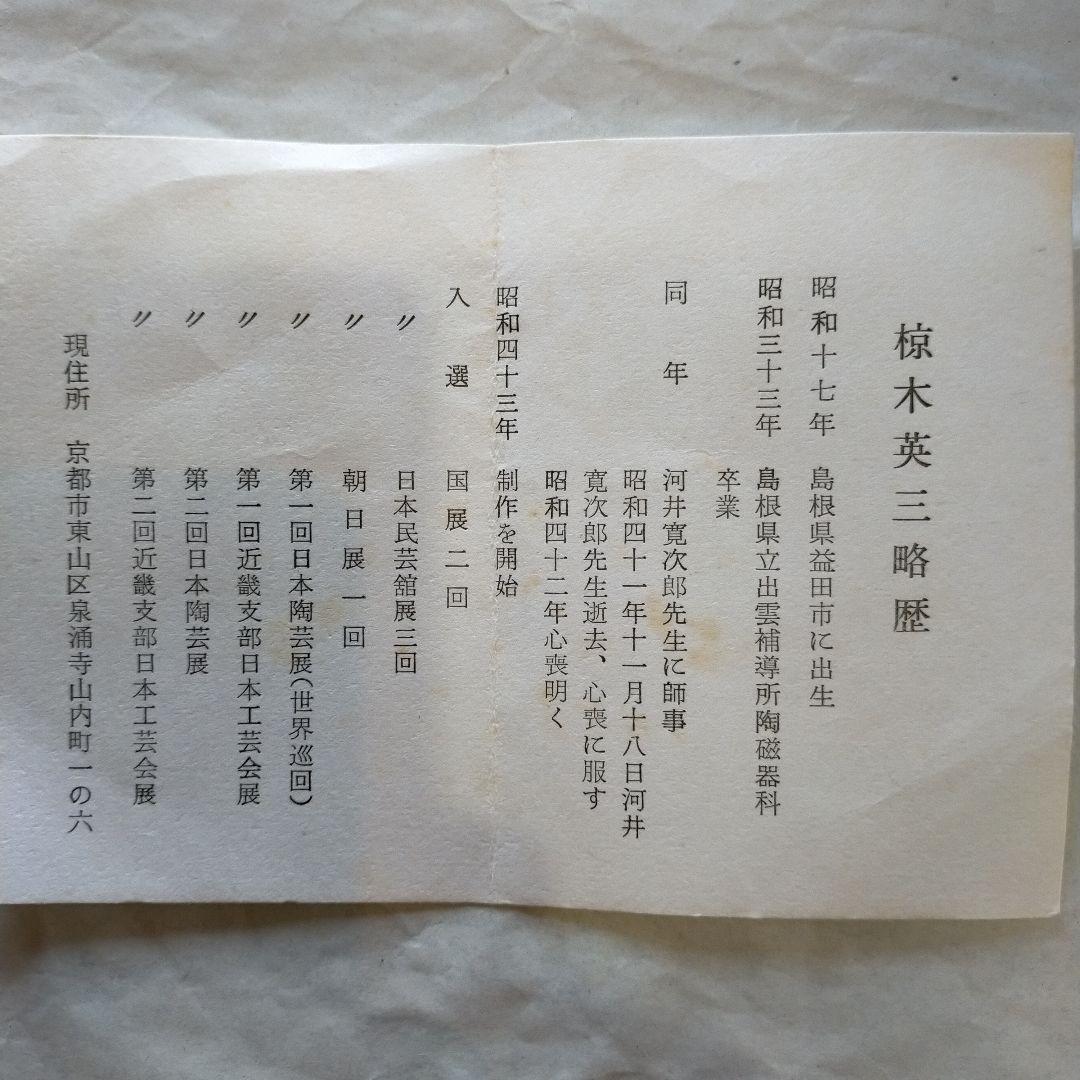 椋木英三略歴
昭和十七年 島根県益田市に出生
昭和三十三年 島根県立出雲補導所陶磁器科
卒業
同年 河井寛次郎先生に師事
昭和四十一年十一月十八日河井
寛次郎先生逝去、心喪に服す
昭和四十二年心喪明く
昭和四十三年 制作を開始
入選 国展二回
〃 日本民芸舘展三回
〃 朝日展一回
〃 第一回日本陶芸展(世界巡回)
〃 第一回近畿支部日本工芸会展
〃 第二回日本陶芸展
〃 第二回近畿支部日本工芸会展
現住所 京都市東山区泉涌寺山内町一の六